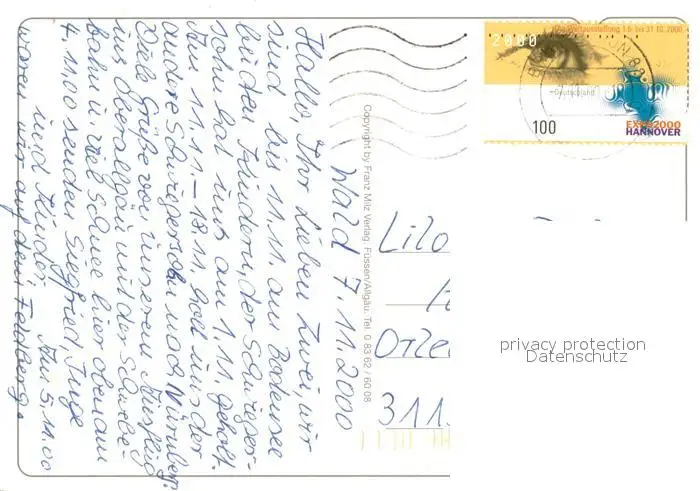 Wald 7.11.2000
Hallo Ihr Lieben Zwei, wir
sind bis 11.11. am Bodensee
bei den Kindern, der Schwieger-
sohn hat uns am 1.11. geholt.
Am 11.11. – 18.11. holt uns der
andere Schwiegersohn nach Nürnberg.
Viele Grüße von unserem Ausflug
ins Oberallgäu mit der Schwebe-
bahn u. viel Schnee hier oben am
4.11.00 senden Siegfried, Inge
und Kinder. Am 5.11.00
waren wir auf dem Feldberg.
Copyright by Franz Milz Verlag, Füssen/Allgäu, Tel. 0 83 62 / 60 08
Die Weltausstellung 1.6. bis 31.10.2000
2000
Deutschland
100
EXPO2000
HANNOVER
Lilo
311
privacy protection
Datenschutz